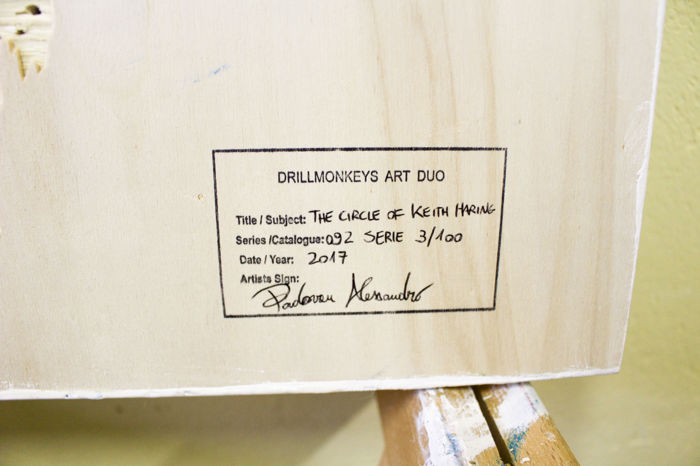 DRILLMONKEYS ART DUO
Title / Subject: THE CIRCLE OF KEITH HARING
Series /Catalogue: 092 SERIE 3/100
Date / Year: 2017
Artists Sign:
Padovan Alessandro